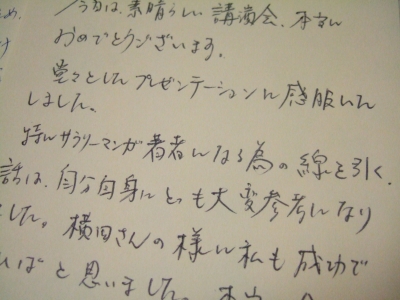 今日は、素晴らしい講演会、本当に
おめでとうございます。
堂々としたプレゼンテーションに感服いた
しました。
特にサラリーマンが著者になる為の線を引く、
話は、自分自身にとっても大変参考になり
した。横田さんの様に私も成功で
ばと思いました。